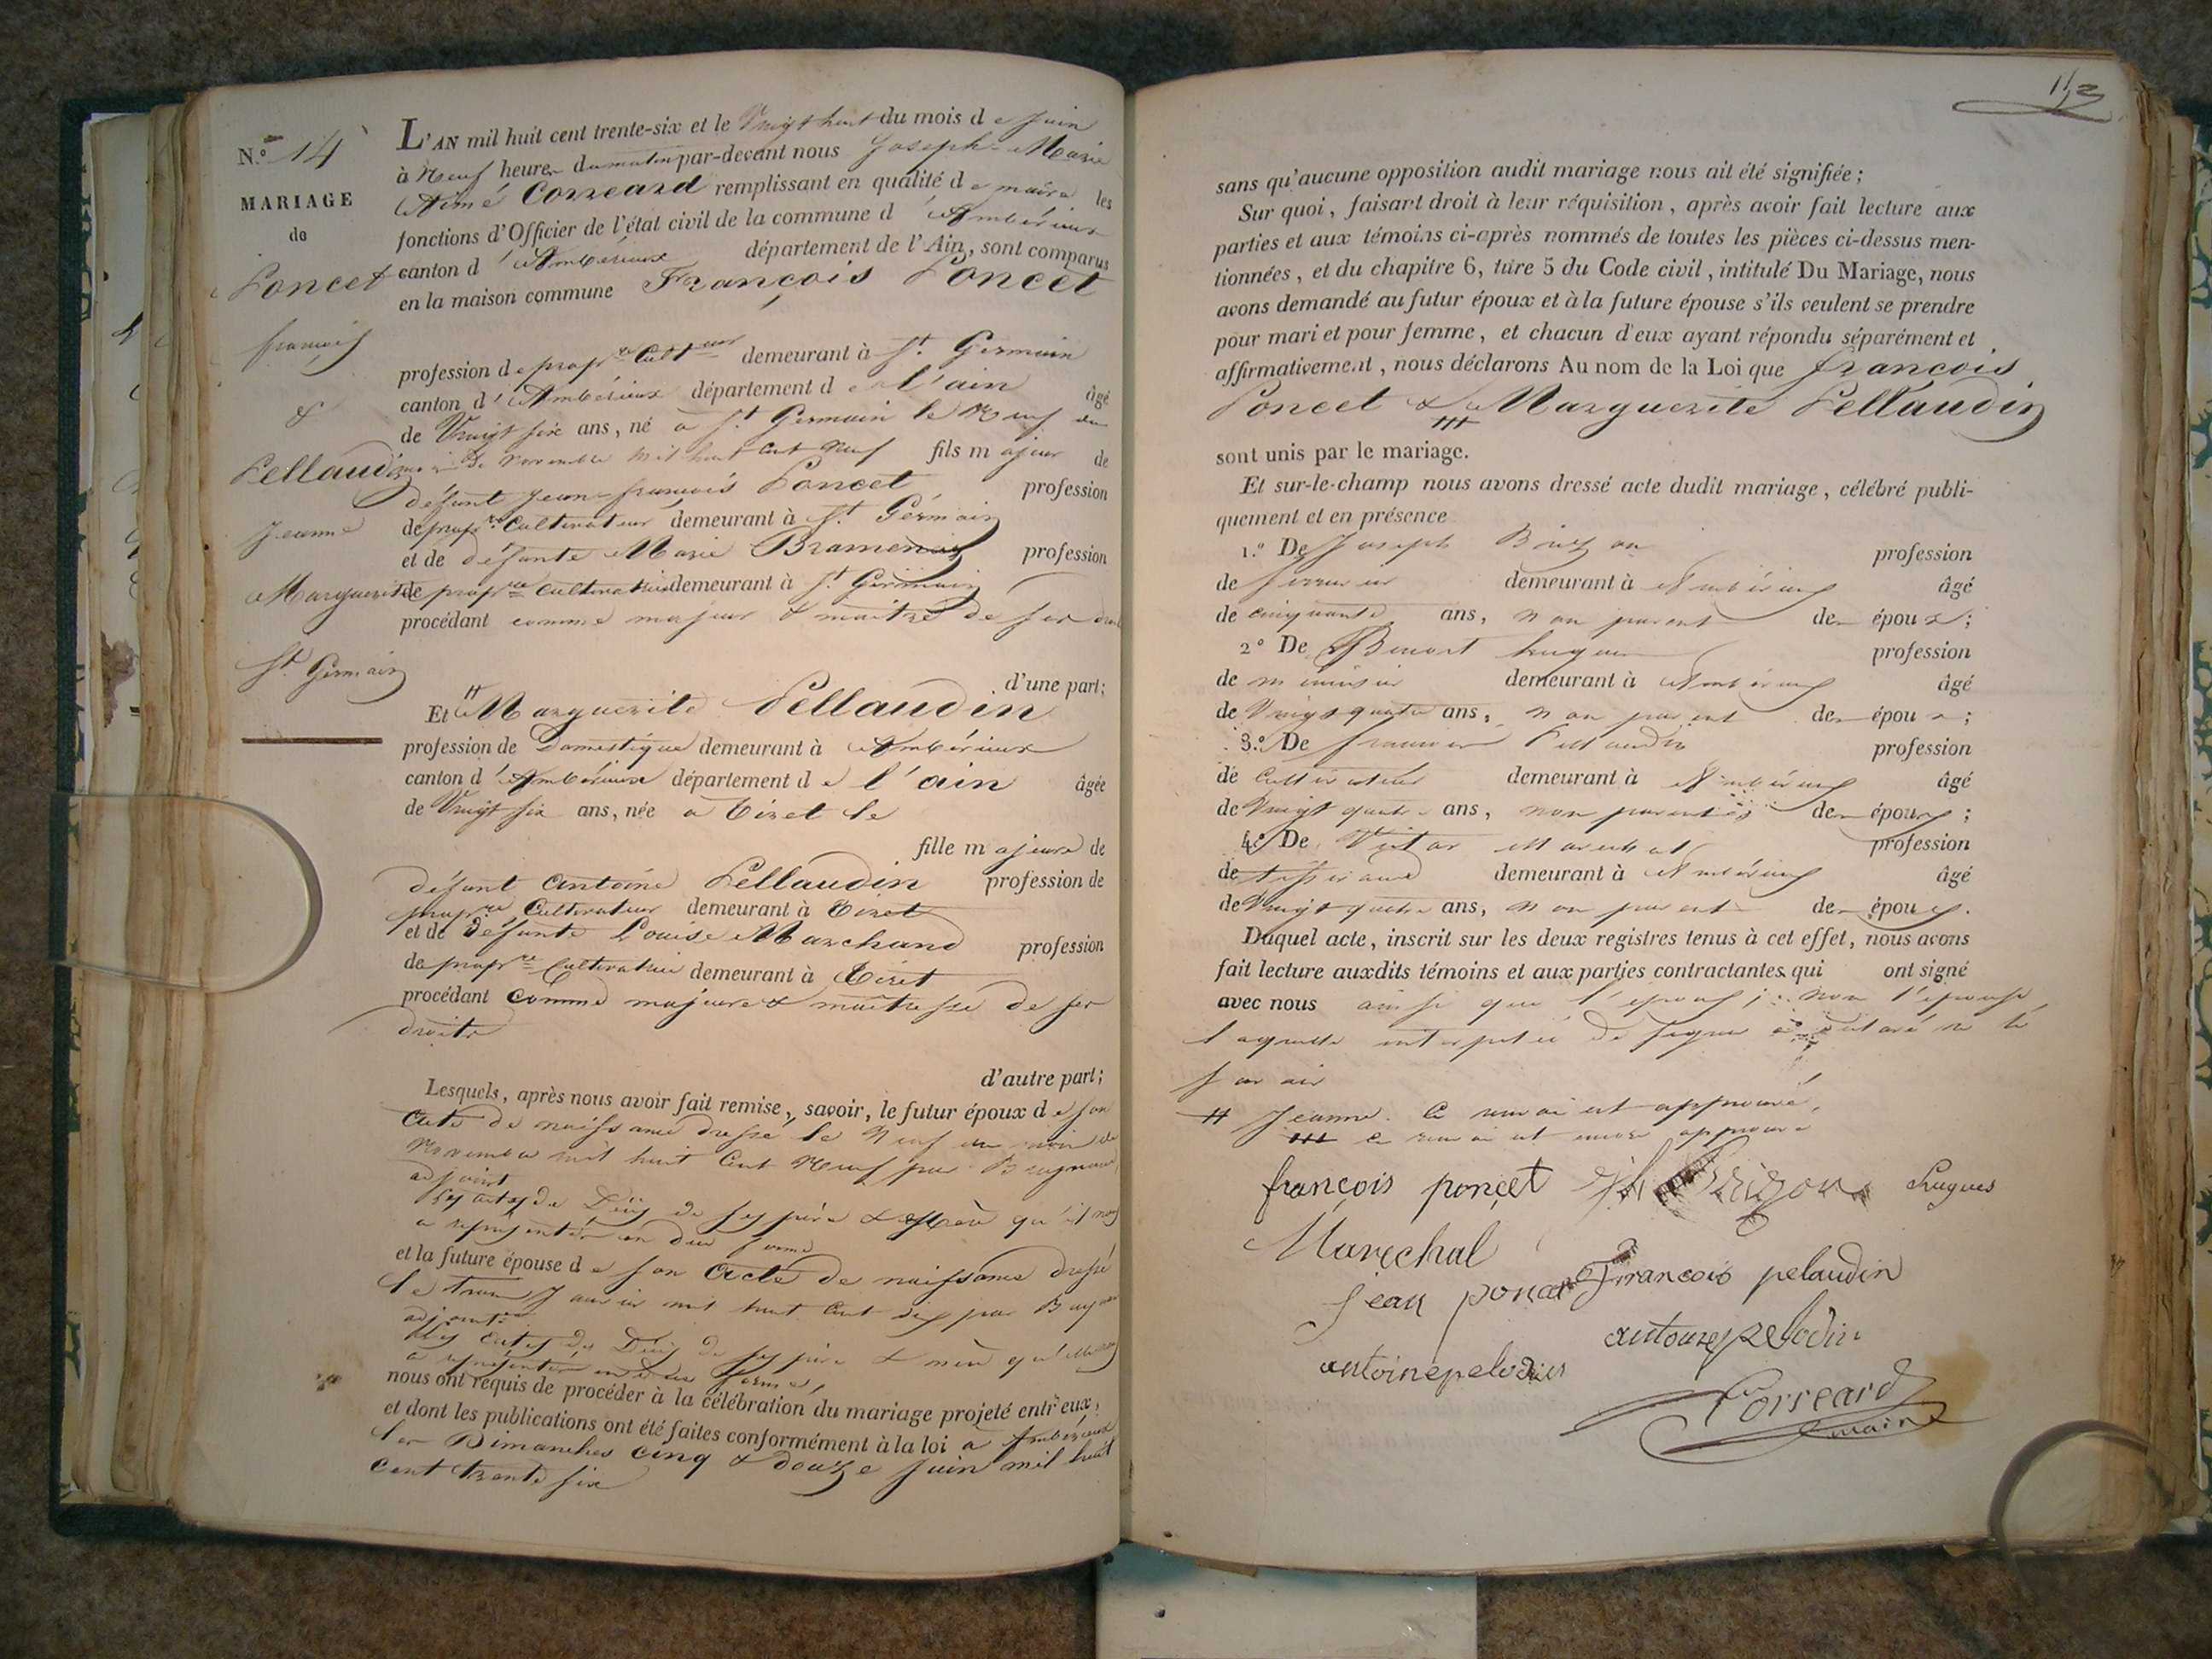 N.º 14
MARIAGE
de
Poncet
françois
&
Pellaudin
Jeanne
Marguerite
St. Germain
L'AN mil huit cent trente-six et le Vingt huit du mois de Juin
à Neuf heures du matin par-devant nous Joseph-Marie
Aimé Corréard remplissant en qualité de maire les
fonctions d'Officier de l'état civil de la commune d'Ambérieux
canton d'Ambérieux département de l'Ain, sont comparus
en la maison commune François Poncet
profession de propre. Cultiveur demeurant à St. Germain
canton d'Ambérieux département de l'ain âgé
de Vingt six ans, né à St. Germain le Neuf du
mois de Novembre mil huit Cent Neuf fils majeur de
défunt Jean-françois Poncet profession
de propre. Cultivateur demeurant à St. Germain
et de défunte Marie Bramenay profession
de propre. Cultivatrice demeurant à St. Germain
procédant comme majeur & maitre de ses droits
d'une part;
Et # Marguerite Pellaudin
profession de Domestique demeurant à Ambérieux
canton d'Ambérieux département de l'ain âgée
de Vingt six ans, née à Tiret le
fille majeure de
défunt Antoine Pellaudin profession de
propre. Cultivateur demeurant à Tiret
et de défunte Louise Marchand profession
de propre. Cultivatrice demeurant à Tiret
procédant comme majeure & maitresse de ses
droits
d'autre part;
Lesquels, après nous avoir fait remise, savoir, le futur époux de son
acte de naissance dressé le Neuf du mois de
Novembre mil huit Cent Neuf par
adjoint
les actes de Décès de ses père & mère qu'il nous
a représentés en due forme
et la future épouse de son acte de naissance dressé
le trois Janvier mil huit Cent dix par
adjoint
les actes de Décès de ses père & mère qu'elle nous
a représentés en due forme,
nous ont requis de procéder à la célébration du mariage projeté entr'eux,
et dont les publications ont été faites conformément à la loi à Ambérieux
les Dimanches cinq & douze Juin mil huit
cent trente six
112
sans qu'aucune opposition audit mariage nous ait été signifiée;
Sur quoi, faisant droit à leur réquisition, après avoir fait lecture aux
parties et aux témoins ci-après nommés de toutes les pièces ci-dessus men-
tionnées, et du chapitre 6, titre 5 du Code civil, intitulé Du Mariage, nous
avons demandé au futur époux et à la future épouse s'ils veulent se prendre
pour mari et pour femme, et chacun d'eux ayant répondu séparément et
affirmativement, nous déclarons Au nom de la Loi que françois
Poncet & Marguerite Pellaudin
sont unis par le mariage.
Et sur-le-champ nous avons dressé acte dudit mariage, célébré publi-
quement et en présence
1.º De Joseph Brizon profession
de serrurier demeurant à Ambérieux âgé
de cinquante ans, non parent des époux;
2º De Benoit hugues profession
de menuisier demeurant à Ambérieux âgé
de Vingt quatre ans, non parent des époux;
3.º De francois Pellaudin profession
de Cultivateur demeurant à Ambérieux âgé
de Vingt quatre ans, non parent des époux;
4.º De Victor Marechal profession
de tisserand demeurant à Ambérieux âgé
de Vingt quatre ans, non parent des époux.
Duquel acte, inscrit sur les deux registres tenus à cet effet, nous avons
fait lecture auxdits témoins et aux parties contractantes qui ont signé
avec nous ainsi que l'époux; non l'épouse,
laquelle interpellée de signer a déclaré ne le
savoir
# Jeanne. Ce renvoi est approuvé,
ce renvoi est encore approuvé
françois ponçet Brizon hugues
Marechal
Jean poncet francois pelaudin
antoine pelodin
antoine pelodin
Corréard
maire